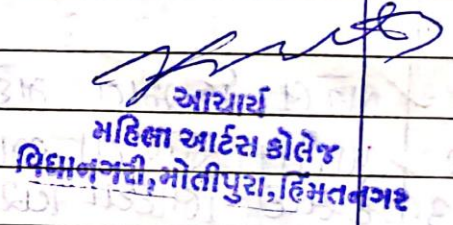 આચાર્ય
મહિલા આર્ટસ કોલેજ
વિધાનગરી,મોતીપુરા,હિંમતનગર